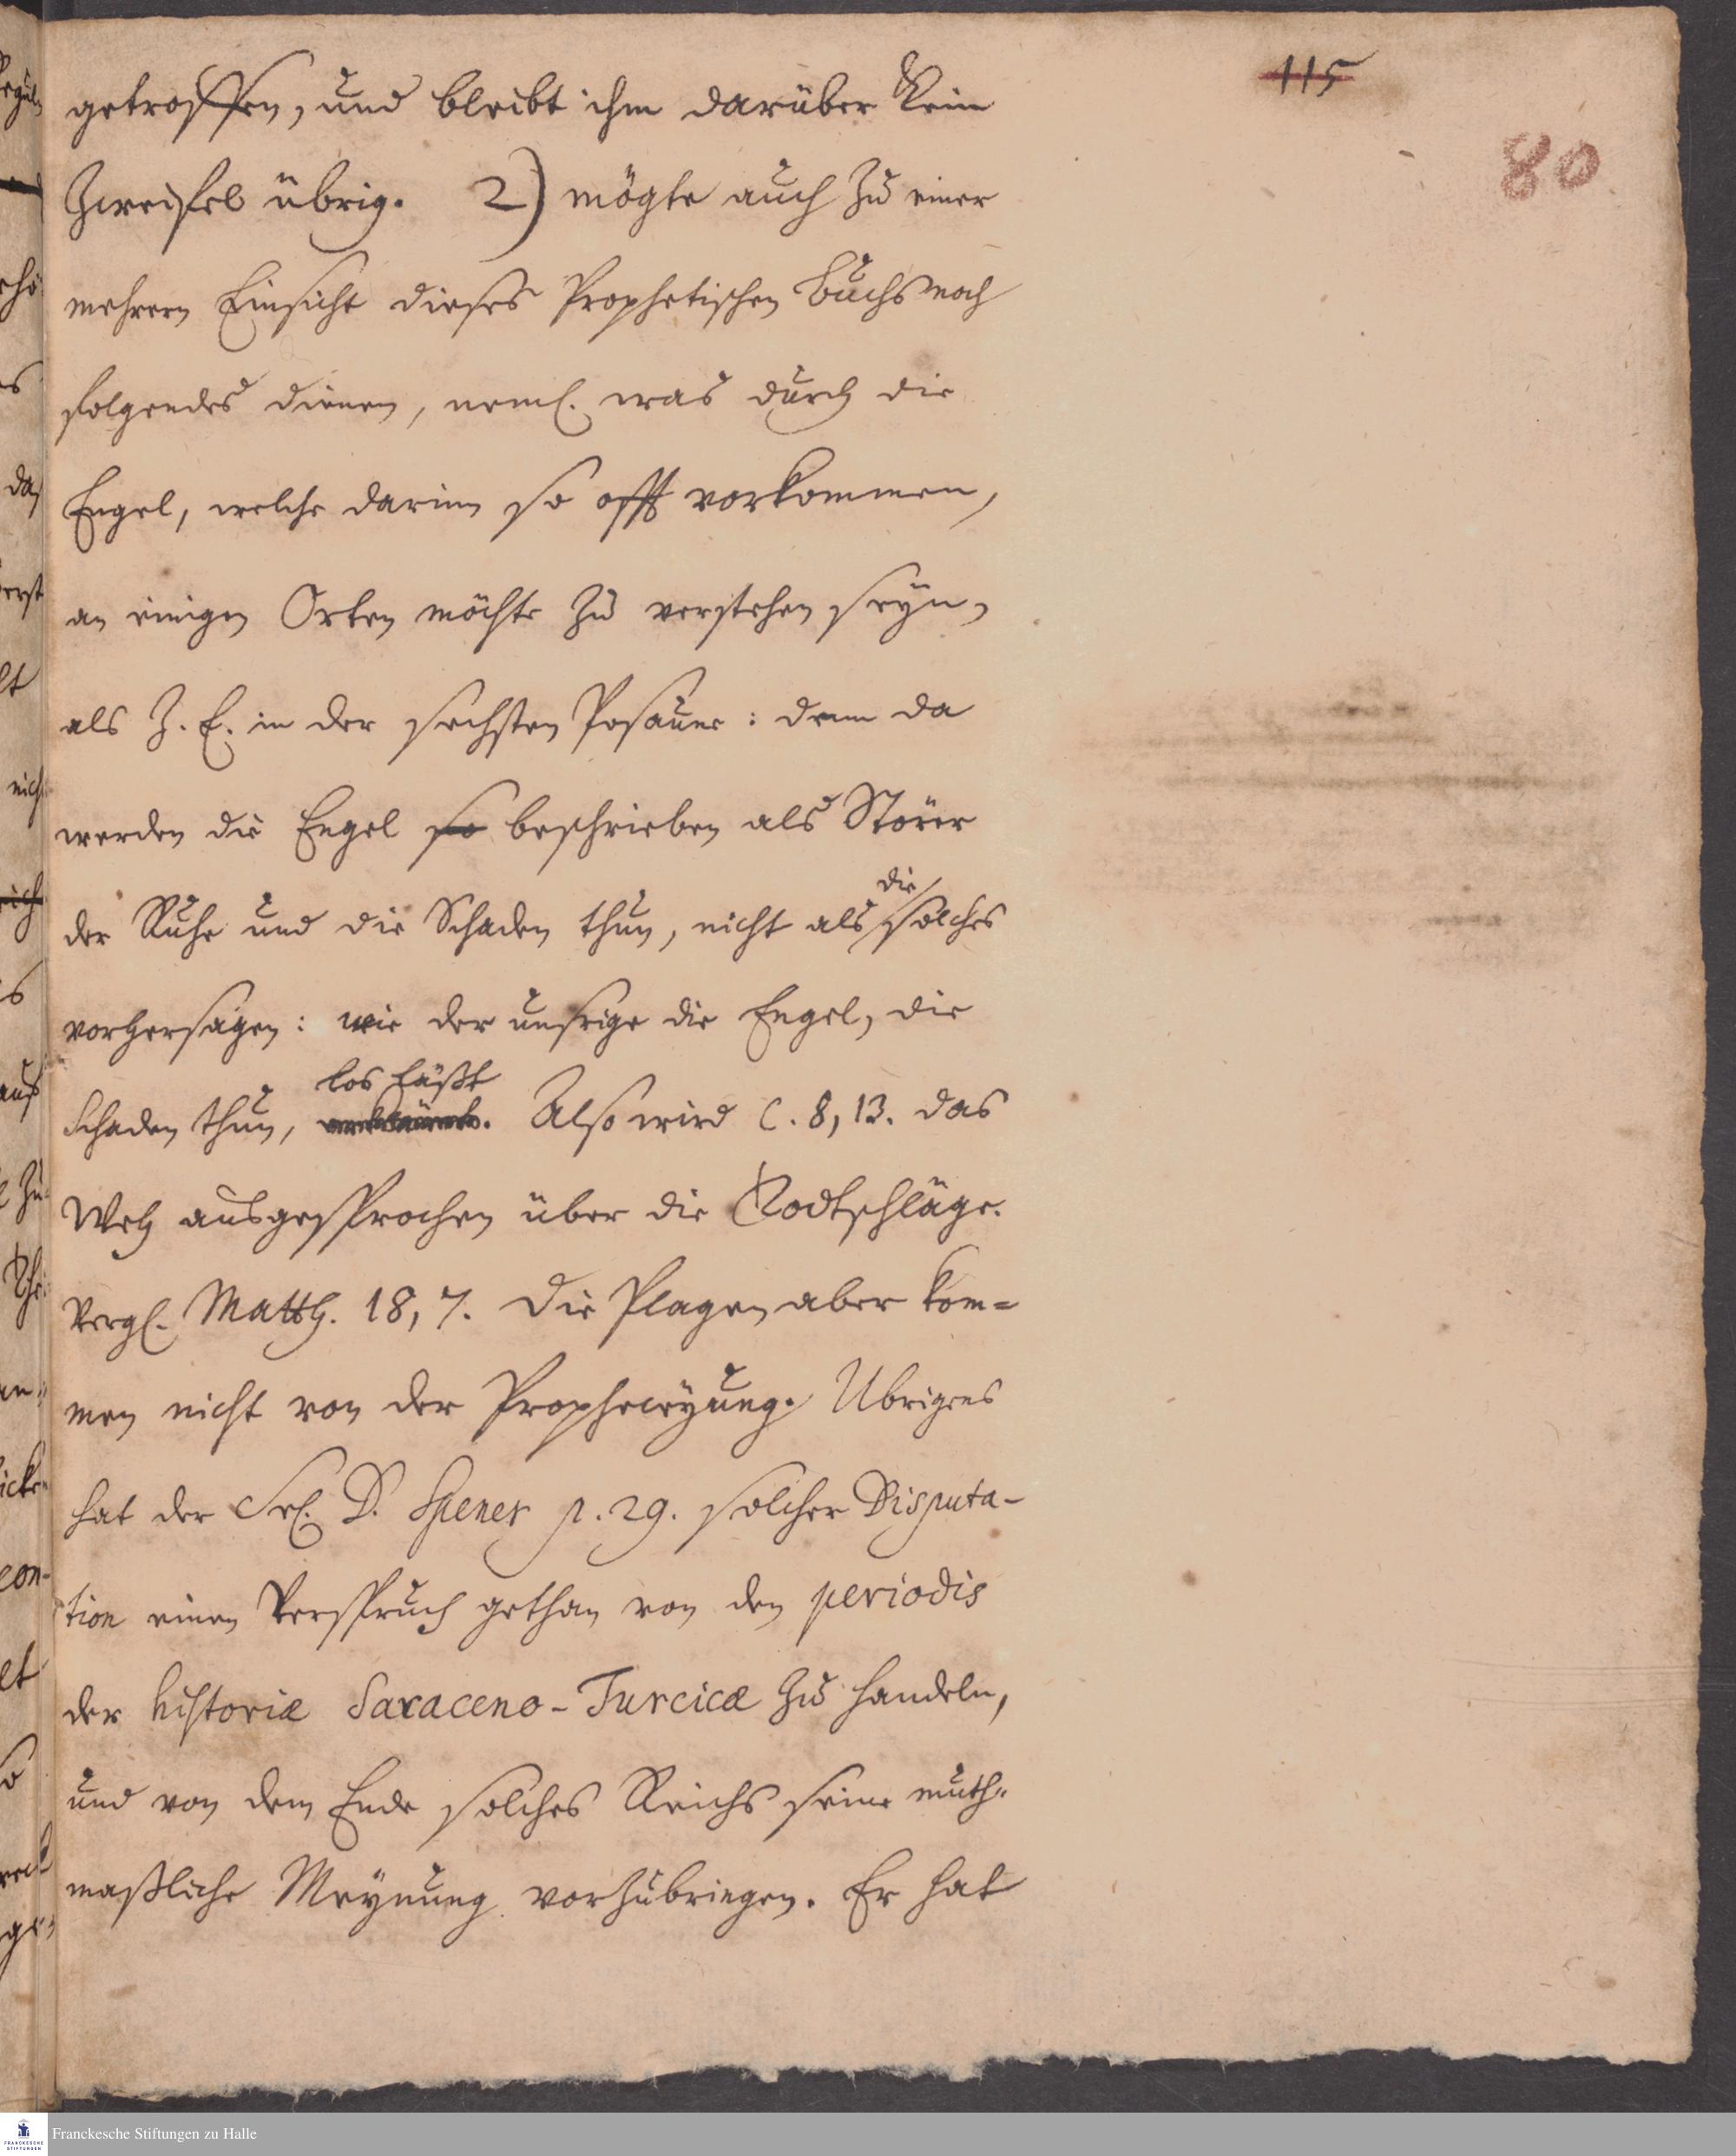 115
80
getroffen, und bleibt ihm darüber kein
Zweifel übrig. 2) mögte auch zu einer
mehrern Einsicht dieses Prophetischen Buchs noch
folgendes dienen, neml. was durch die
Engel, welche darinn so offt vorkommen,
an einigen Orten möchte zu verstehen seyn,
als Z. E. in der sechsten Posaune: denn da
werden die Engel so beschrieben als Störer
der Ruhe und die Schaden thun, nicht als die solches
vorhersagen: wie der unsrige die Engel, die
Schaden thun, los läßt. Also wird C. 8, 13. das
Weh ausgesprochen über die Todtschläge.
Vergl. Matth. 18, 7. Die Plagen aber kom=
men nicht von der Propheceyung. Ubrigens
hat der Sel. D. Spener p. 29. solcher Disputa-
tion einen Verspruch gethan von den periodis
der historiæ Saraceno-Turcicæ zu handeln,
und von dem Ende solches Reichs seine muth=
maßliche Meynung vorzubringen. Er hat
Franckesche Stiftungen zu Halle